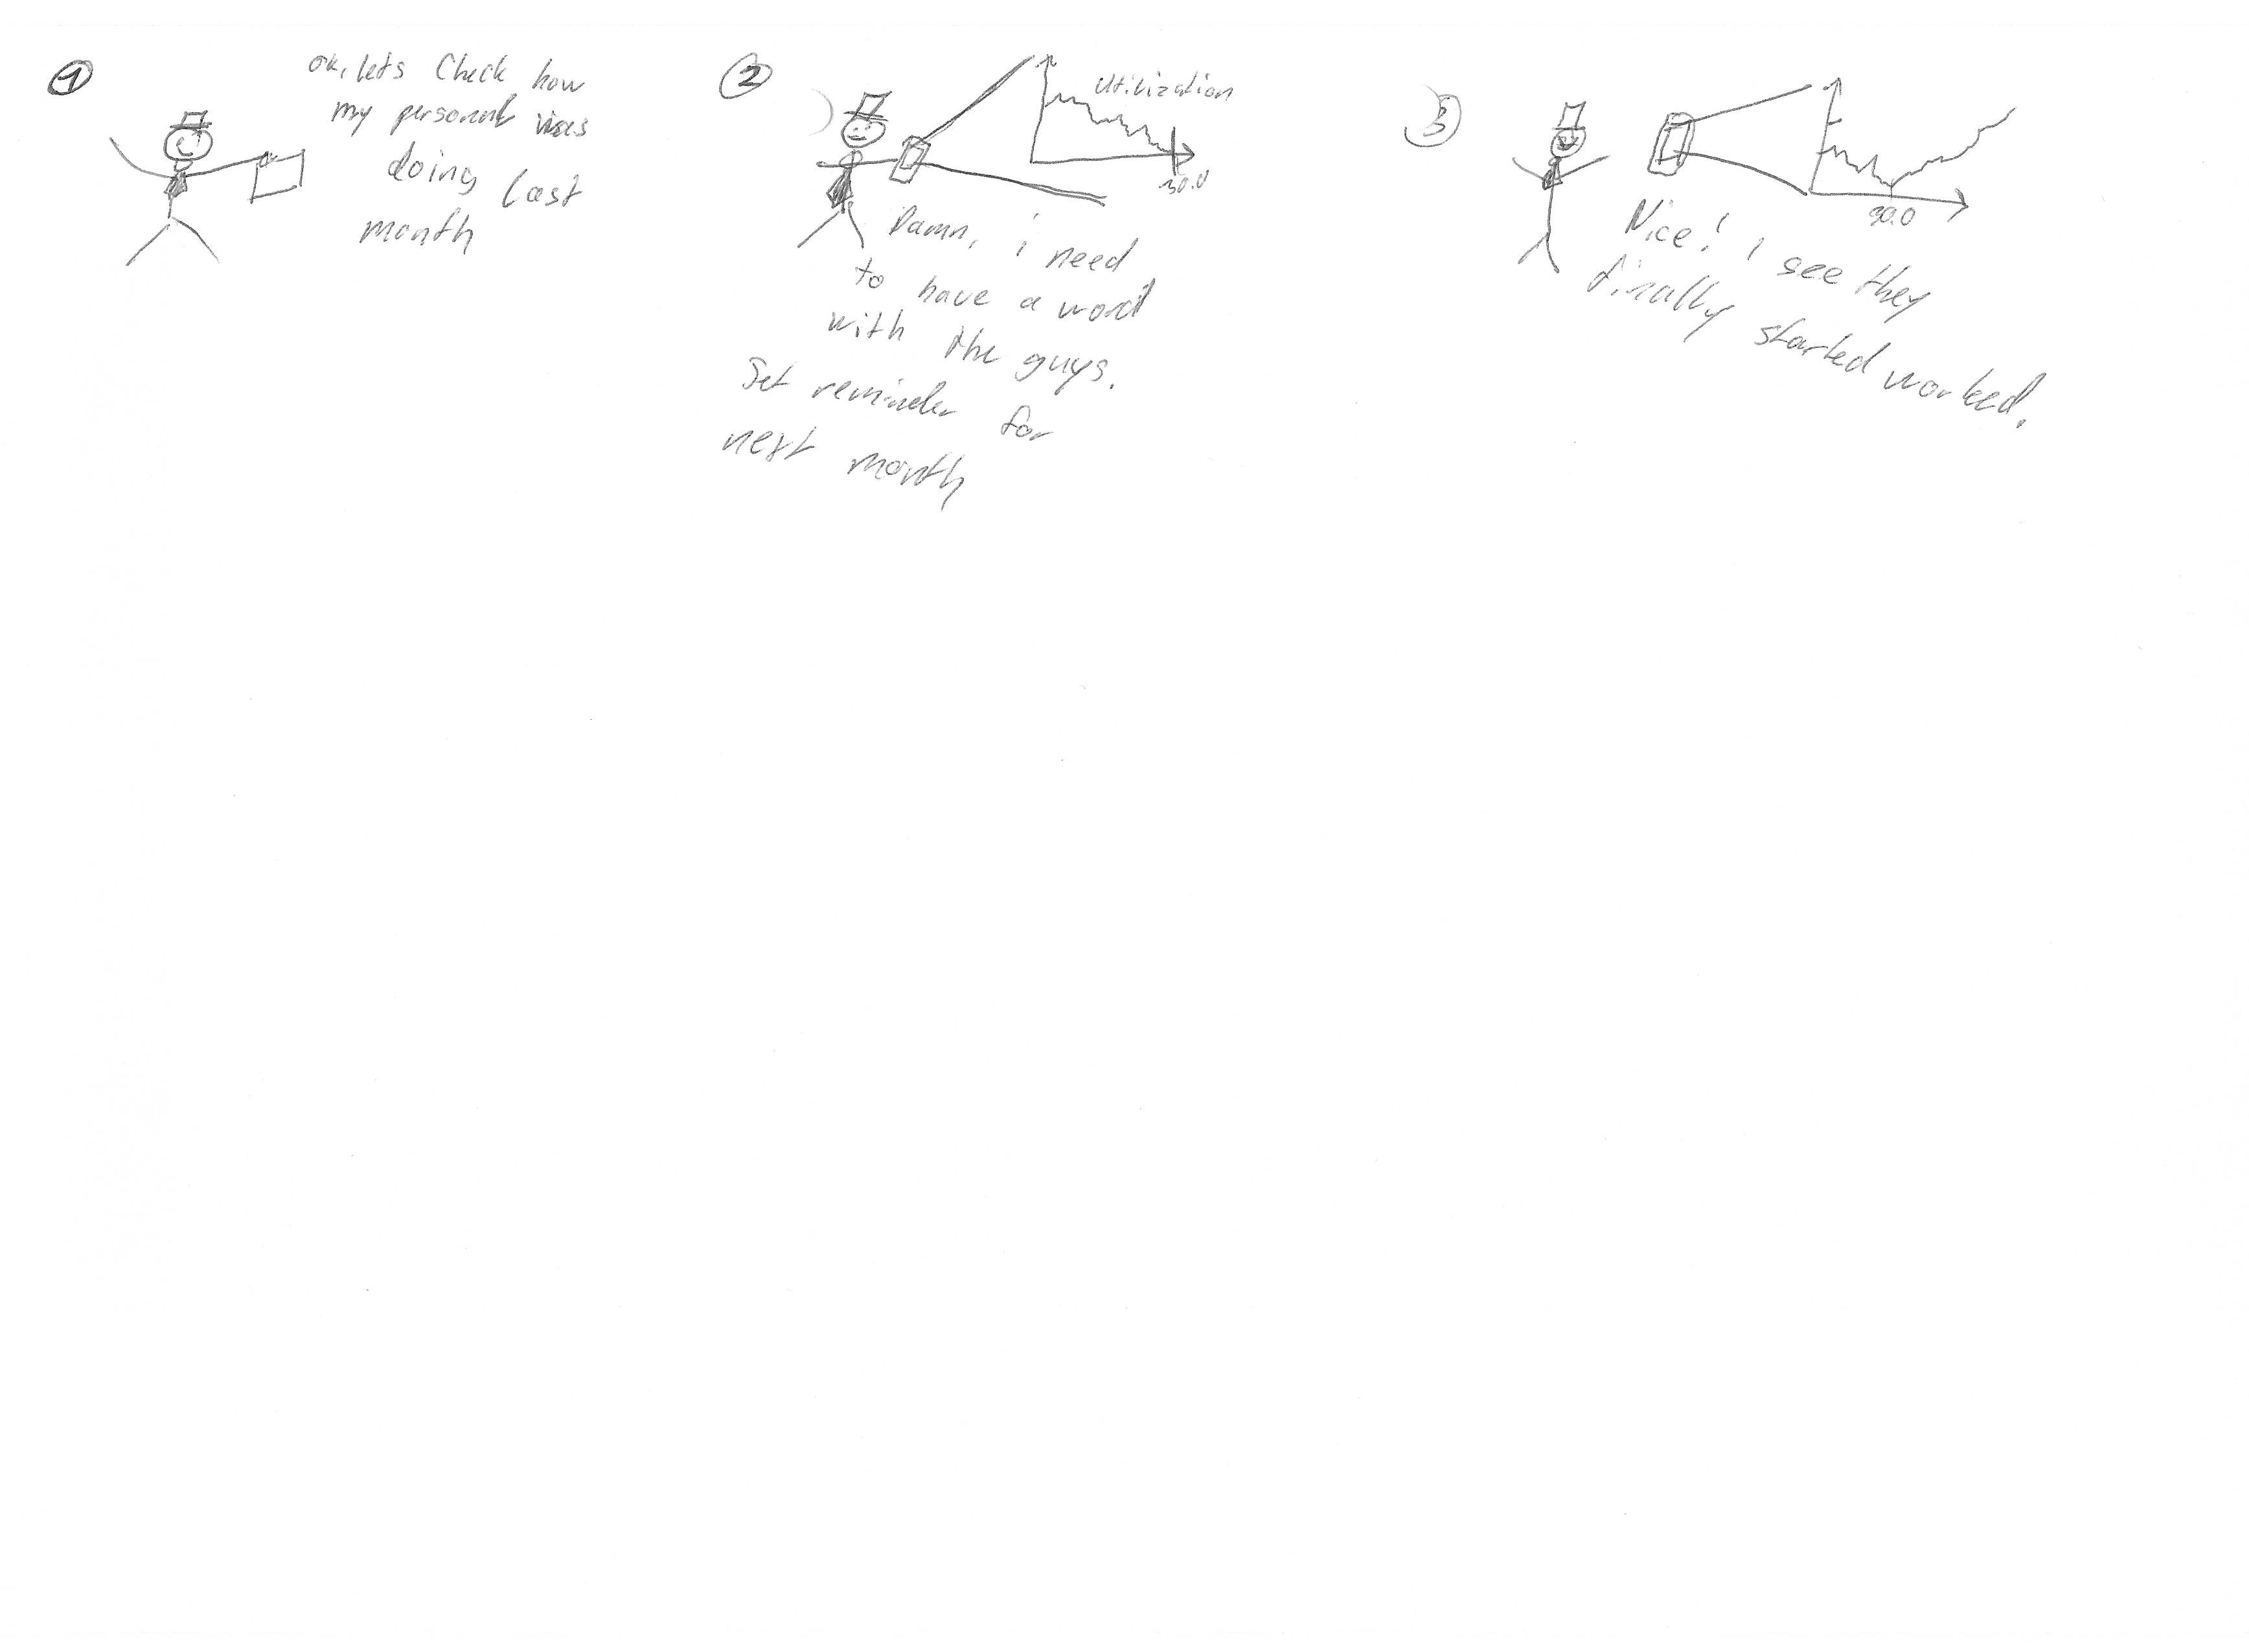 1
ok, lets Check how
my personel was
doing last
month
2
Utilization
30.0
Damn, i need
to have a word
with the guys.
Set reminder for
next month
3
30.0
Nice! i see they
finally started worked.